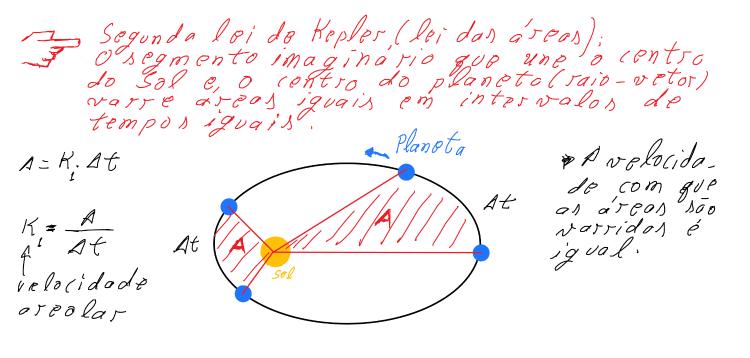 Segunda lei de Kepler (lei das áreas):
O segmento imaginário que une o centro
do Sol e, o centro do planeta (raio-vetor)
varre áreas iguais em intervalos de
tempos iguais.
A = K₁. Δt
K₁ = A / Δt
velocidade
areolar
Planeta
Δt
A
Δt
A
Sol
A velocida-
de com que
as áreas são
varridas é
igual.